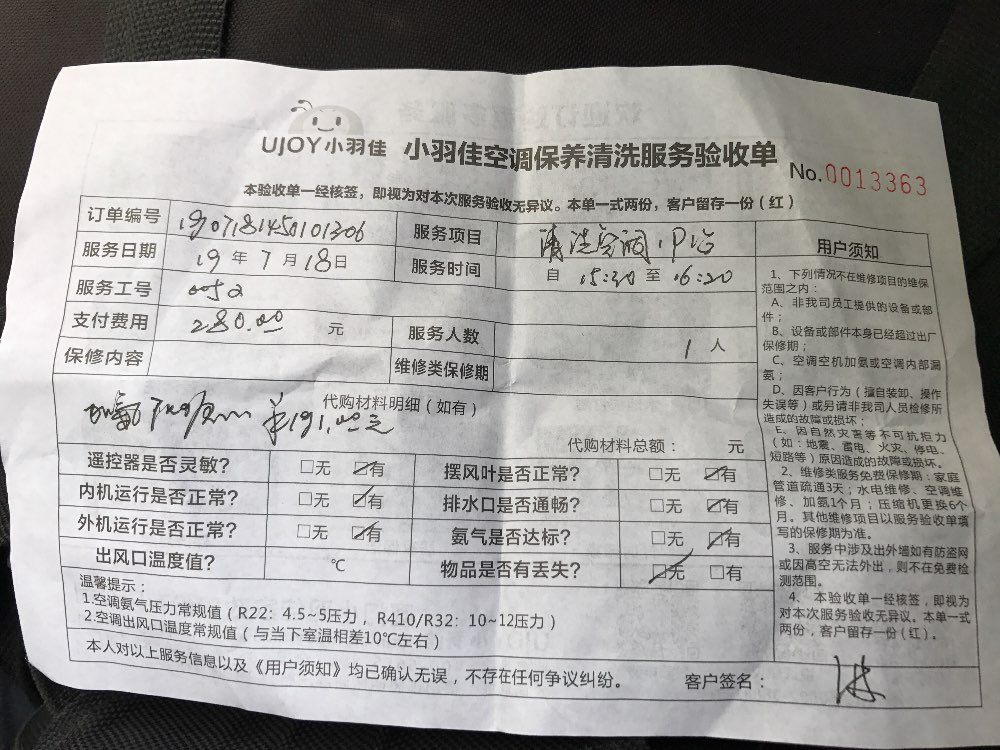 UJOY小羽佳 小羽佳空调保养清洗服务验收单
No.0013363
本验收单一经核签，即视为对本次服务验收无异议。本单一式两份，客户留存一份（红）
订单编号 1907181450101306 服务项目 清洗空调
服务日期 19 年 7 月 18 日 服务时间 自 15:30 至 16:20
服务工号 0052
支付费用 280.00 元 服务人数 1 人
保修内容 维修类保修期
代购材料明细（如有）
代购材料总额： 元
遥控器是否灵敏？ □无 ☑有 摆风叶是否正常？ □无 ☑有
内机运行是否正常？ □无 ☑有 排水口是否通畅？ □无 ☑有
外机运行是否正常？ □无 ☑有 氨气是否达标？ □无 ☑有
出风口温度值？ ℃ 物品是否有丢失？ ☑无 □有
温馨提示：
1.空调氨气压力常规值（R22：4.5~5压力，R410/R32：10~12压力）
2.空调出风口温度常规值（与当下室温相差10℃左右）
本人对以上服务信息以及《用户须知》均已确认无误，不存在任何争议纠纷。 客户签名：
用户须知
1、下列情况不在维修项目的维保
范围之内：
A、非我司员工提供的设备或部
件；
B、设备或部件本身已经超过出厂
保修期；
C、空调空机加氨或空调内部漏
氨；
D、因客户行为（擅自装卸、操作
失误等）或另请非我司人员检修所
造成的故障或损坏；
E、因自然灾害等不可抗拒力
（如：地震、蓄电、火灾、停电、
短路等）原因造成的故障或损坏。
2、维修类服务免费保修期：家庭
管道疏通3天；水电维修、空调维
修、加氨1个月；压缩机更换6个
月。其他维修项目以服务验收单填
写的保修期为准。
3、服务中涉及出外墙如有防盗网
或因高空无法外出，则不在免费检
测范围。
4、本验收单一经核签，即视为
对本次服务验收无异议。本单一式
两份，客户留存一份（红）。